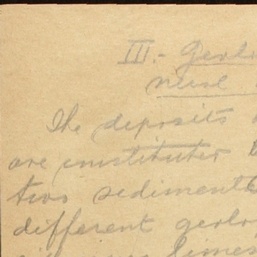 III.- Geolo
The deposits
are constituter b
two sediments
different geolo
limes